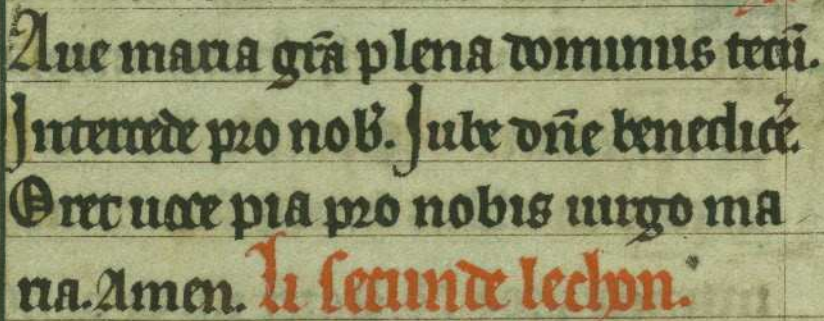 Aue maria gr̄a plena dominus tecū.
Intercede pro nob̄. Iube dn̄e benedicẽ.
Oret uoce pia pro nobis uirgo ma
ria. Amen. Li secunde lechon.